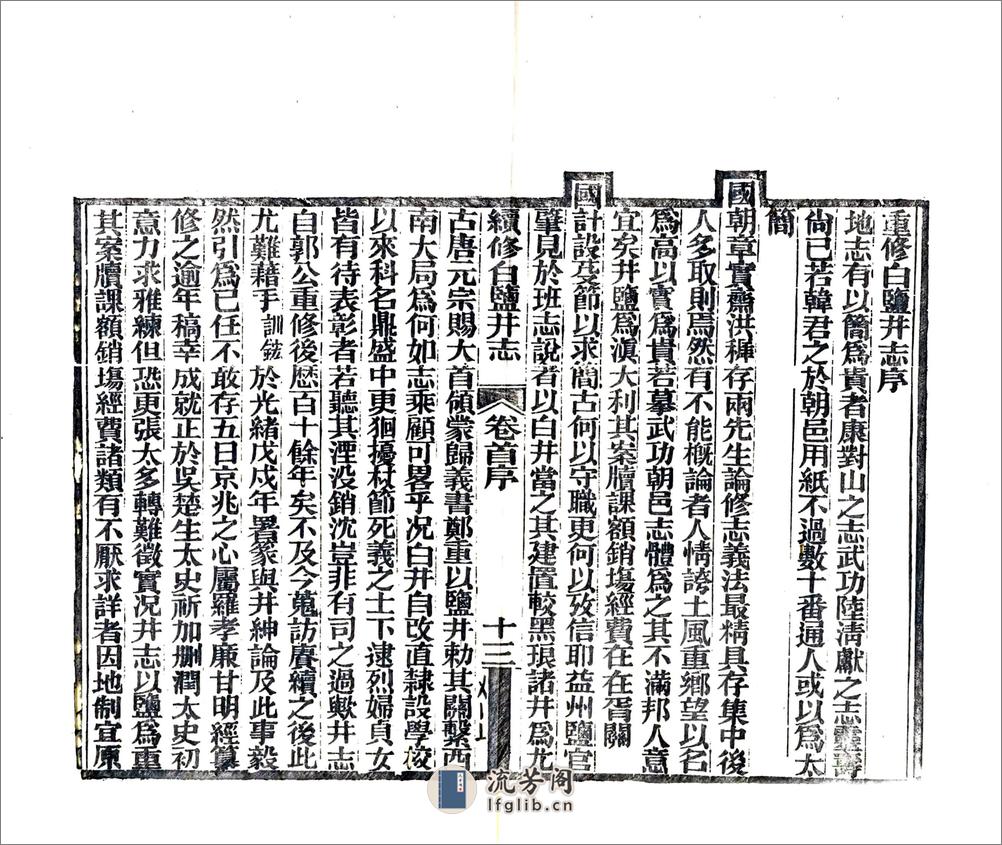 重修白鹽井志序
地志有以簡爲貴者康對山之志武功陸淸獻之志靈壽
尙已若韓君之於朝邑用紙不過數十番通人或以爲太
簡
國朝章實齋洪稺存兩先生論修志義法最精具存集中後
人多取則焉然有不能概論者人情誇土風重鄕望以名
爲高以實爲貴若摹武功朝邑志體爲之其不滿邦人意
宜矣井鹽爲滇大利其案牘課額銷塲經費在在胥關
國計設及節以求簡古何以守職更何以攷信耶益州鹽官
肇見於班志說者以白井當之其建置較黑琅諸井爲尤
續修白鹽井志 卷首序 十三
古唐元宗賜大首領蒙歸義書鄭重以鹽井勅其關繫西
南大局爲何如志乘顧可畧乎况白井自改直隷設學校
以來科名鼎盛中更徊擾杖節死義之士下逮烈婦貞女
皆有待表彰者若聽其湮没銷沈豈非有司之過歟井志
自郭公重修後歴百十餘年矣不及今蒐訪賡續之後此
尤難藉手訓鋐於光緖戊戌年署篆與井紳論及此事毅
然引爲已任不敢存五日京兆之心屬羅孝廉甘明經纂
修之逾年稿幸成就正於吳楚生太史祈加删潤太史初
意力求雅練但恐更張太多轉難徵實况井志以鹽爲重
其案牘課額銷塲經費諸類有不厭求詳者因地制宜原
流芳阁
lfglib.cn